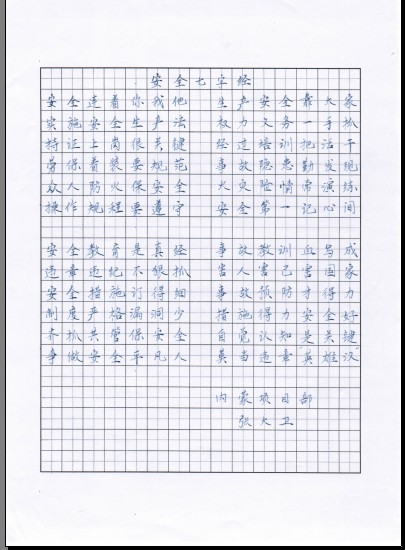 安全七字经
安全连着你我他 生产安全靠大家
实施安全生产法 权力义务一手抓
持证上岗很关键 经过培训把活干
劳保着装要规范 事故隐患勤发现
众人防火保安全 火灾险情常演练
操作规程要遵守 安全第一记心间
安全教育是真经 事故教训血写成
违章违纪不狠抓 害人害己害国家
安全措施订得细 事故预防才得力
制度严格漏洞少 措施得力安全好
齐抓共管保安全 自觉认知是关键
争做安全平凡人 莫当违章“英雄汉”
内蒙项目部
张大卫